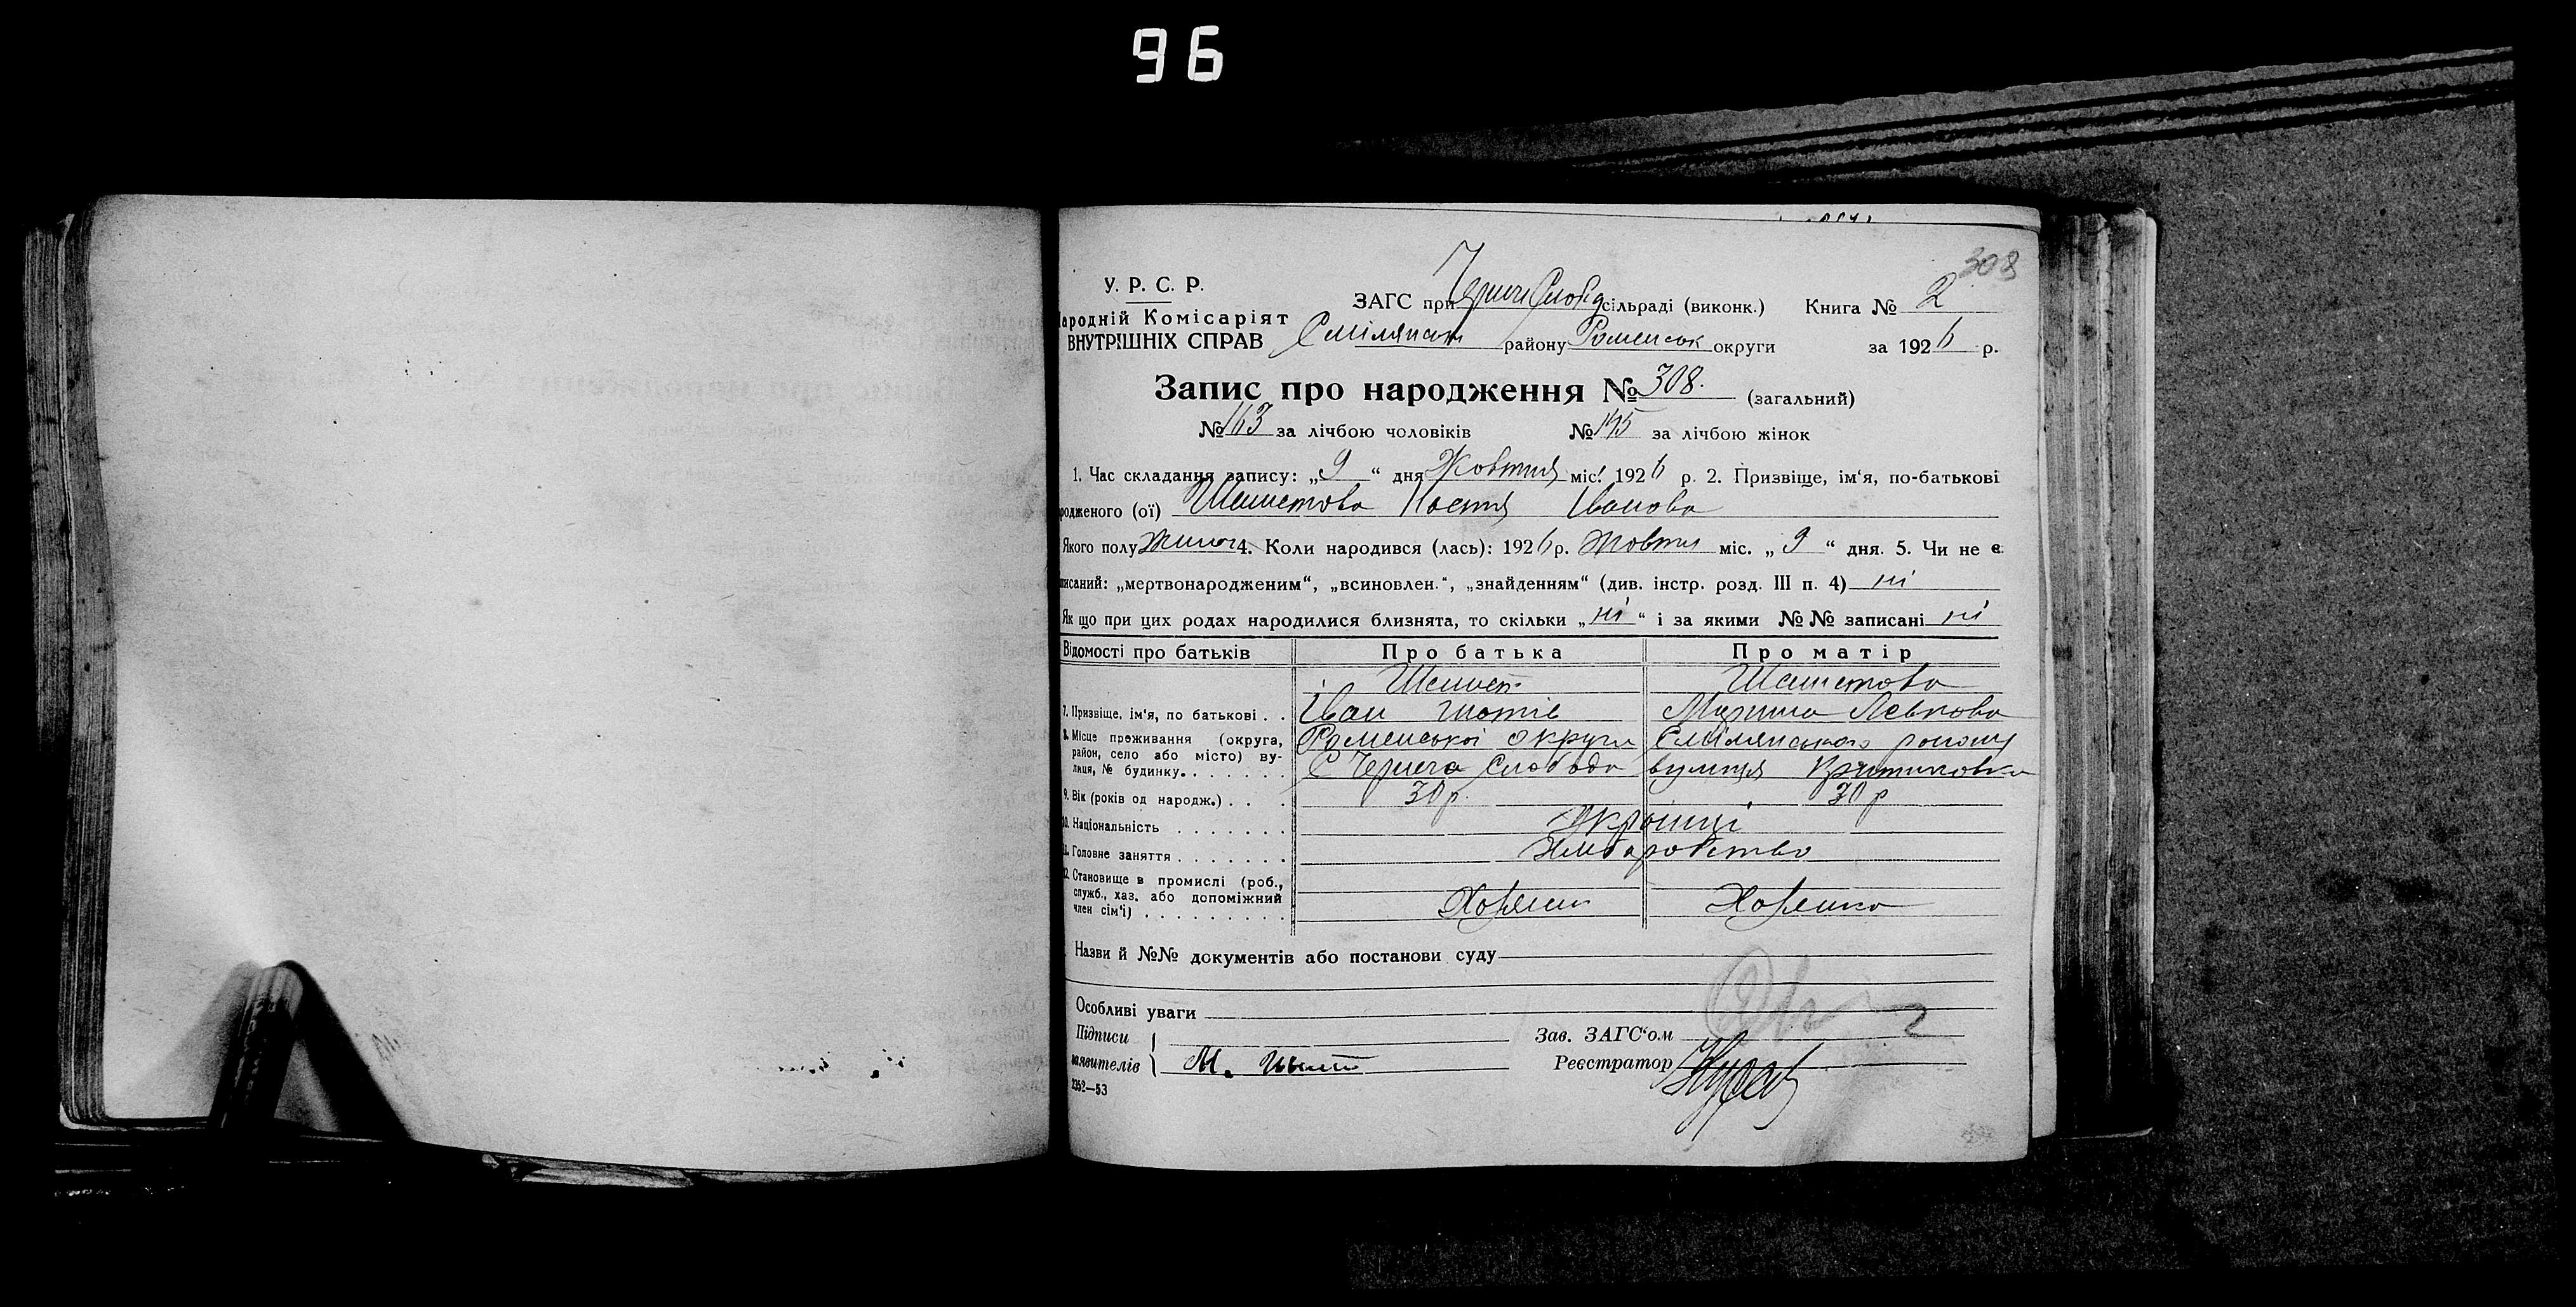 96
308
У. Р. С. Р.
Народній Комісаріят
ВНУТРІШНІХ СПРАВ
ЗАГС при Черничи Слобід сільраді (виконк.) Книга № 2
Смілянськ району Роменськ округи за 1926 р.
Запис про народження № 308. (загальний)
№ 163 за лічбою чоловіків № 145 за лічбою жінок
1. Час складання запису: „9“ дня Жовтня міс. 1926 р. 2. Призвіще, ім‘я, по-батькові
родженого (ої) Настя Іванова
Якого полу Жиноч 4. Коли народився (лась): 1926 р. Жовтня міс. „9“ дня. 5. Чи не є
писаний: „мертвонародженим“, „всиновлен.“, „знайденням“ (див. інстр. розд. III п. 4) ні
Як що при цих родах народилися близнята, то скільки „ні“ і за якими №№ записані ні
Відомості про батьків Про батька Про матір
7. Призвіще, ім‘я, по батькові . . Іван Марина Левкова
8. Місце проживання (округа, район, село або місто) вулиця, № будинку. Роменської округи Смілянського району
С Чернеча Слобода вулиця
9. Вік (років од народж.) . . . 30 р. 30 р
10. Національність . . . . . . . Українці
11. Головне заняття . . . . . . . Хліборобство
12. Становище в промислі (роб.,
служб., хаз. або допоміжний
член сім‘ї) . . . . . . . . . Хозяїн Хозяйка
Назви й №№ документів або постанови суду
Особливі уваги
Підписи
заявителів М.
Зав. ЗАГС‘ом
Реєстратор
2352—53